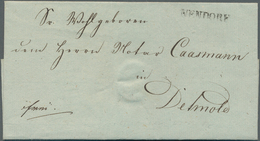 VENDORF
Sr. Wohlgeboren
dem Herrn Notar Caasmann
in
franco.
Detmold